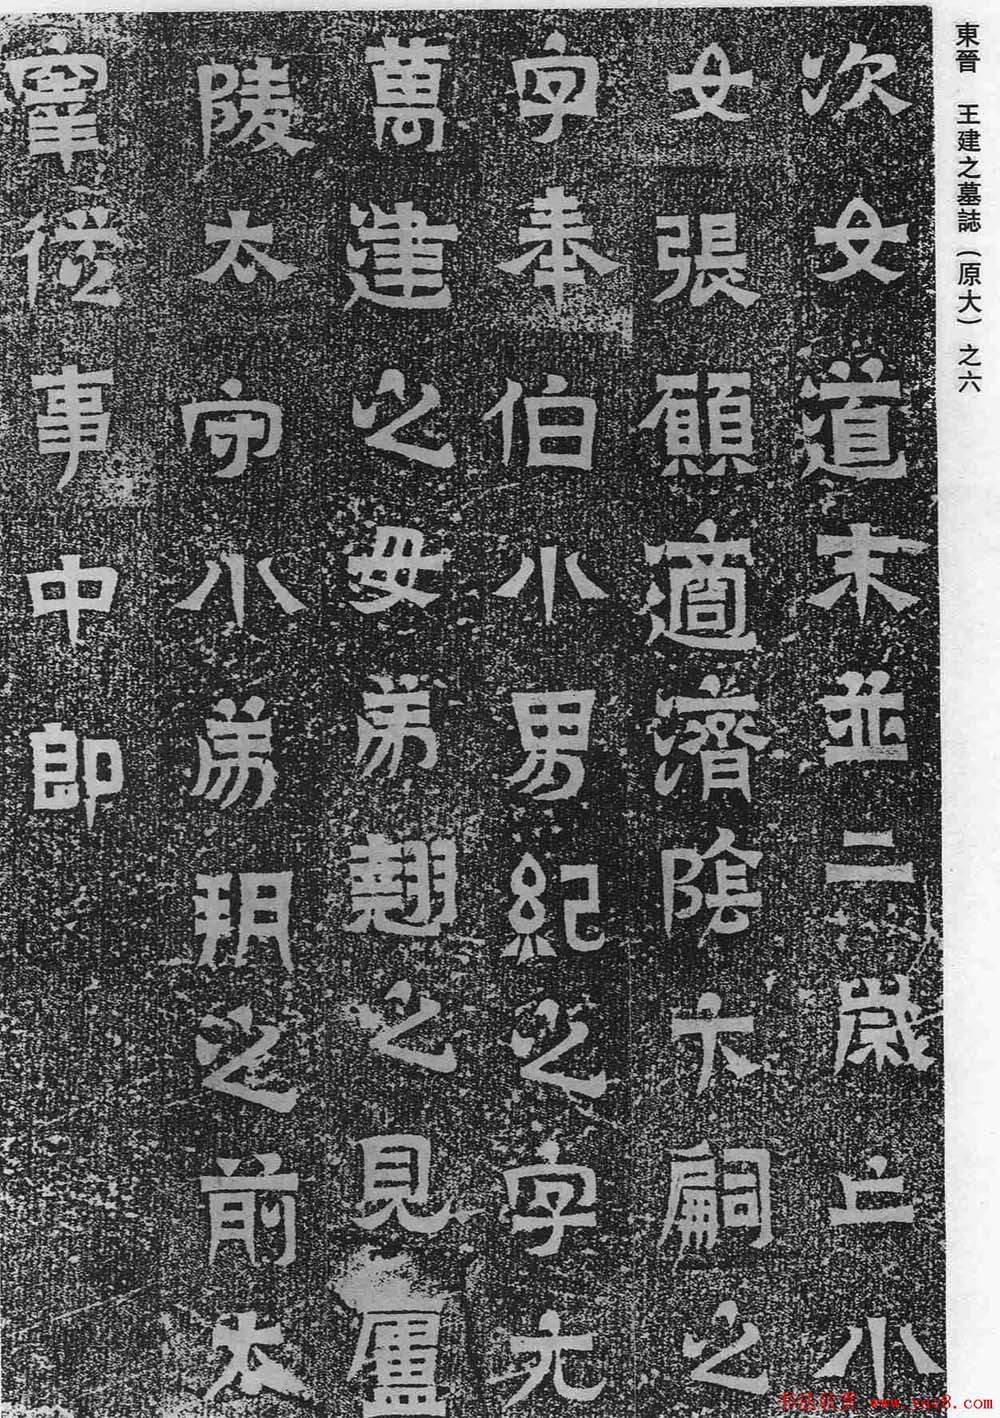 東晉 王建之墓誌(原大)之六
次女道末並二歲亡小
女張願適濟陰卞嗣之
字奉伯小男紀之字元
萬建之母弟翹之見廬
陵太守小弟朔之前太
宰從事中郎
书法欣赏 www.yac8.com